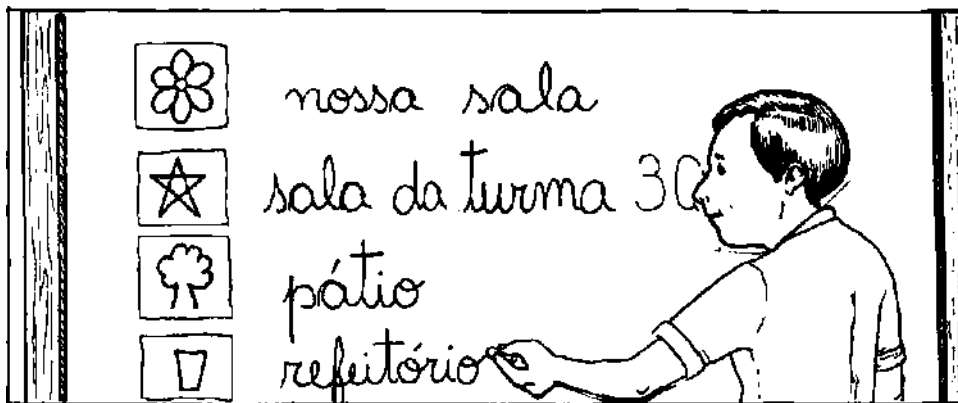 nossa sala
sala da turma 30
pátio
refeitório